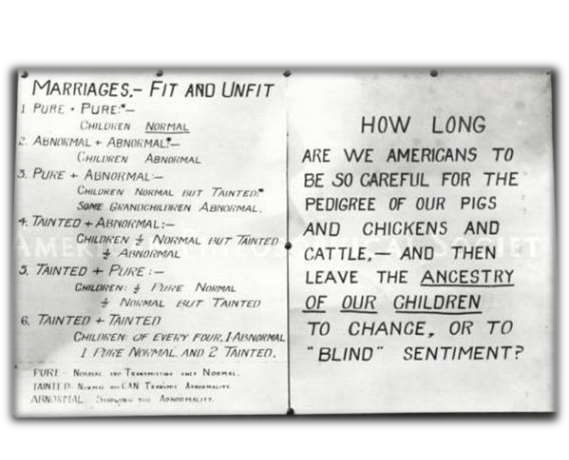 MARRIAGES.- FIT AND UNFIT
1 PURE + PURE:-
CHILDREN NORMAL
2. ABNORMAL + ABNORMAL:-
CHILDREN ABNORMAL
3. PURE + ABNORMAL:-
CHILDREN NORMAL BUT TAINTED:
SOME GRANDCHILDREN ABNORMAL.
4. TAINTED + ABNORMAL:-
CHILDREN ½ NORMAL BUT TAINTED
½ ABNORMAL
5. TAINTED + PURE:-
CHILDREN: ½ PURE NORMAL
½ NORMAL BUT TAINTED
6. TAINTED + TAINTED
CHILDREN: OF EVERY FOUR, 1 ABNORMAL
1 PURE NORMAL AND 2 TAINTED.
PURE - NORMAL AND TRANSMITTING ONLY NORMAL.
TAINTED - NORMAL BUT CAN TRANSMIT ABNORMALITY
ABNORMAL - SHOWING THE ABNORMALITY.
HOW LONG
ARE WE AMERICANS TO
BE SO CAREFUL FOR THE
PEDIGREE OF OUR PIGS
AND CHICKENS AND
CATTLE,- AND THEN
LEAVE THE ANCESTRY
OF OUR CHILDREN
TO CHANCE, OR TO
"BLIND" SENTIMENT?
AMERICAN PHILOSOPHICAL SOCIETY